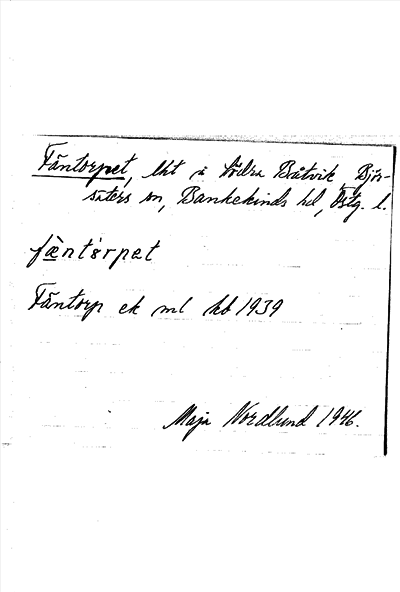 Fäntorpet, lht å Södra Båtvik, Björ-
säters sn, Bankekinds hd, Östg. l.
fæntǫrpet
Fäntorp ek ml hb 1939
Maja Nordlund 1946.